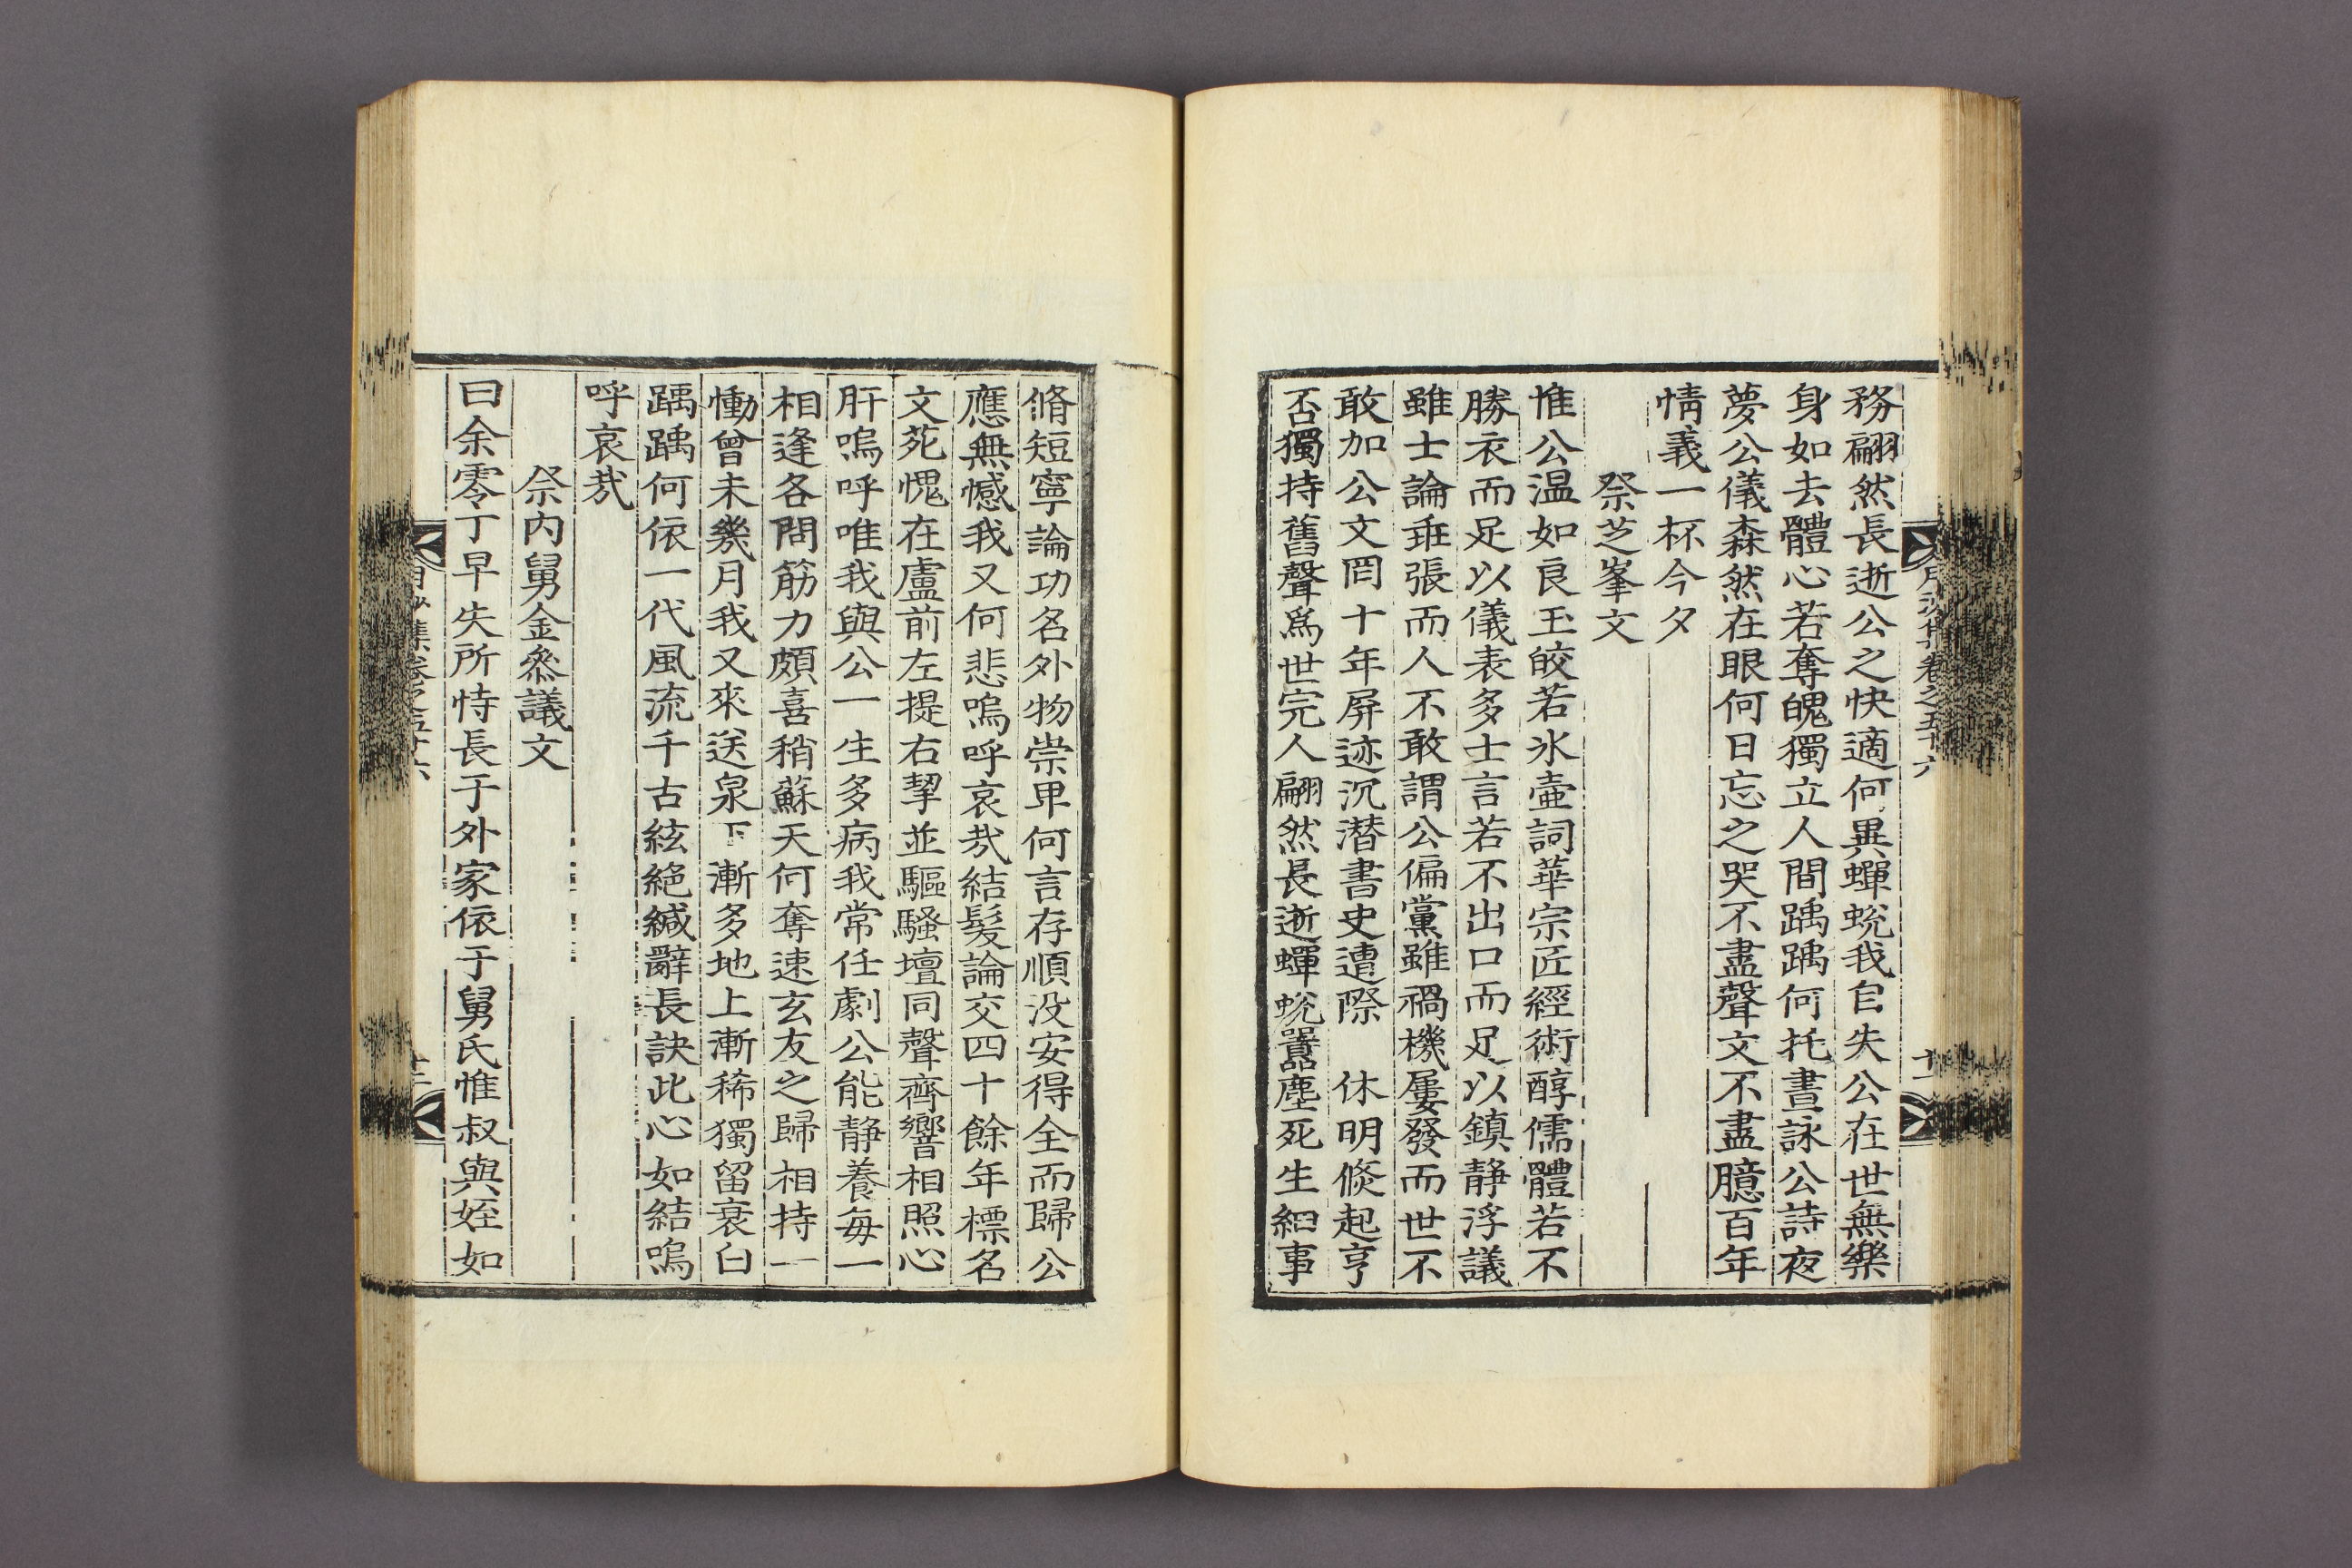 月沙集卷之五十六
十一
務翩然長逝公之快適何異蟬蛻我自失公在世無樂
身如去體心若奪魄獨立人間踽踽何托晝詠公詩夜
夢公儀森然在眼何日忘之哭不盡聲文不盡臆百年
情義一杯今夕
祭芝峯文
惟公温如良玉皎若氷壺詞華宗匠經術醇儒體若不
勝衣而足以儀表多士言若不出口而足以鎮静浮議
雖士論乖張而人不敢謂公偏黨雖禍機屢發而世不
敢加公文罔十年屏迹沉潜書史遭際 休明倐起亨
否獨持舊聲爲世完人翩然長逝蟬蛻囂塵死生細事
脩短寧論功名外物崇卑何言存順没安得全而歸公
應無憾我又何悲嗚呼哀㢤結髮論交四十餘年標名
文苑愧在盧前左提右挈並驅騷壇同聲齊響相照心
肝嗚呼唯我與公一生多病我常任劇公能静養每一
相逢各問筋力頗喜稍蘇天何奪速玄友之歸相持一
慟曾未幾月我又來送泉下漸多地上漸稀獨留衰白
踽踽何依一代風流千古絃絶緘辭長訣此心如結嗚
呼哀㢤
祭内舅金叅議文
曰余零丁早失所恃長于外家依于舅氏惟叔與姪如
月沙集卷之五十六
十二